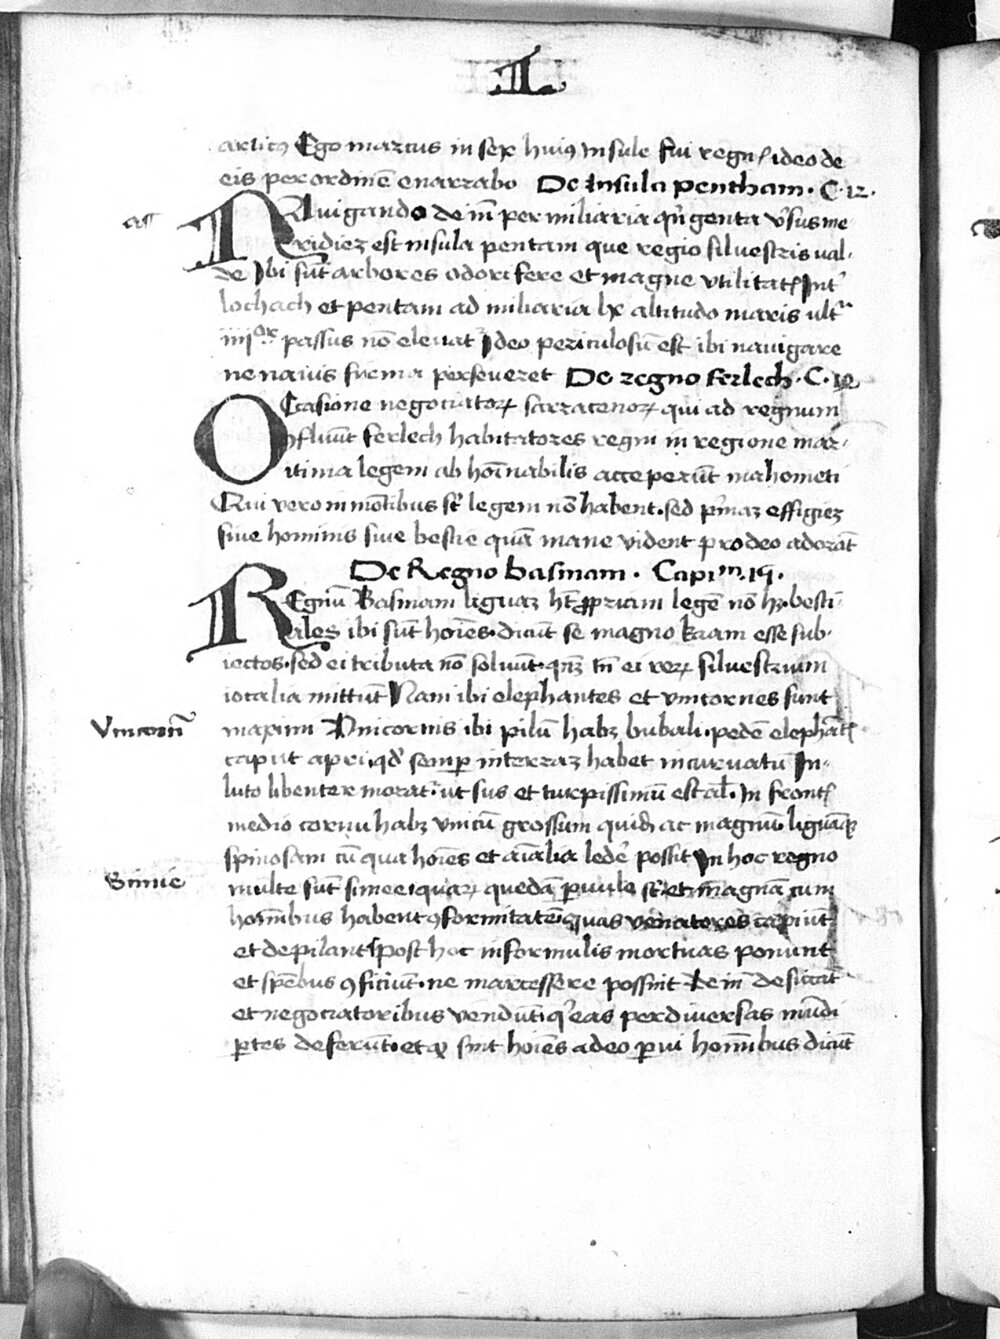 I
articus Ego marcus in sex huius insule fui regnis ideo de
eis per ordinē enarrabo De insula pentham . C . 12 .
Nauigando de insula per miliaria quingenta v̓sus me-
ridiez est insula pentam que regio siluestris ual-
de Ibi sūt arbores odorifere et magne vtilitatis Int̓
lochach et pentam ad miliaria lx altitudo maris ult̓
iiijor passus nō eleuat̓ Ideo periculosū est ibi nauigare
ne nauis firma perseueret De regno ferlech . C .
Occasione negociatoꝝ sarracenoꝝ qui ad regnum
ꝯfluūt ferlech habitatores regni in regione mar-
itima legem abhoīnabilis acceperūt mahometi
Qui vero in mōtibus sūt legem nō habent . sed p̓maz effigiez
siue hominis siue bestie quā mane vident pro deo adorāt
De Regno basmam . Capim . 19 .
Regnū Basmam liguaz ht̄ ꝓpriam legē nō hꝫ . besti-
ales ibi sūt hoīes . dicūt se magno kaam esse sub-
iectos . sed ei tributa nō soluūt . qꝫ tn̄ ei reꝝ siluestrium
iocalia mittūt Nam ibi elephantes et vnicornes sunt
Vnicornū
maximi Vnicornis ibi pilū habꝫ bubali . pedē elephātis
caput apri . qd̓ semꝑ in terraz habet incuruatū In-
luto libenter morat̓ . ut sus et turpissimū est al̓ . In frontis
medio cornu habꝫ vnicū grossum quidē ac magnū . liguāqꝫ
spinosam cū qua hoīes et aīalia ledē possit In hoc regno
Simie
multe sūt simee . quaꝝ quedā paruule sūt et magnā cum
hoīnibus habent ꝯformitatē . quas venatores capiūt
et depilant . post hoc in formulis mortuas ponunt
et spēbus ꝯficiūt . ne marcessere possint deīn desiccāt
et negociatoribus vendūt . q̓ eas per diuersas mūdi
ꝑtes deferūt . et qꝫ sint hoīes adeo ꝑui hoīnibus dicūt